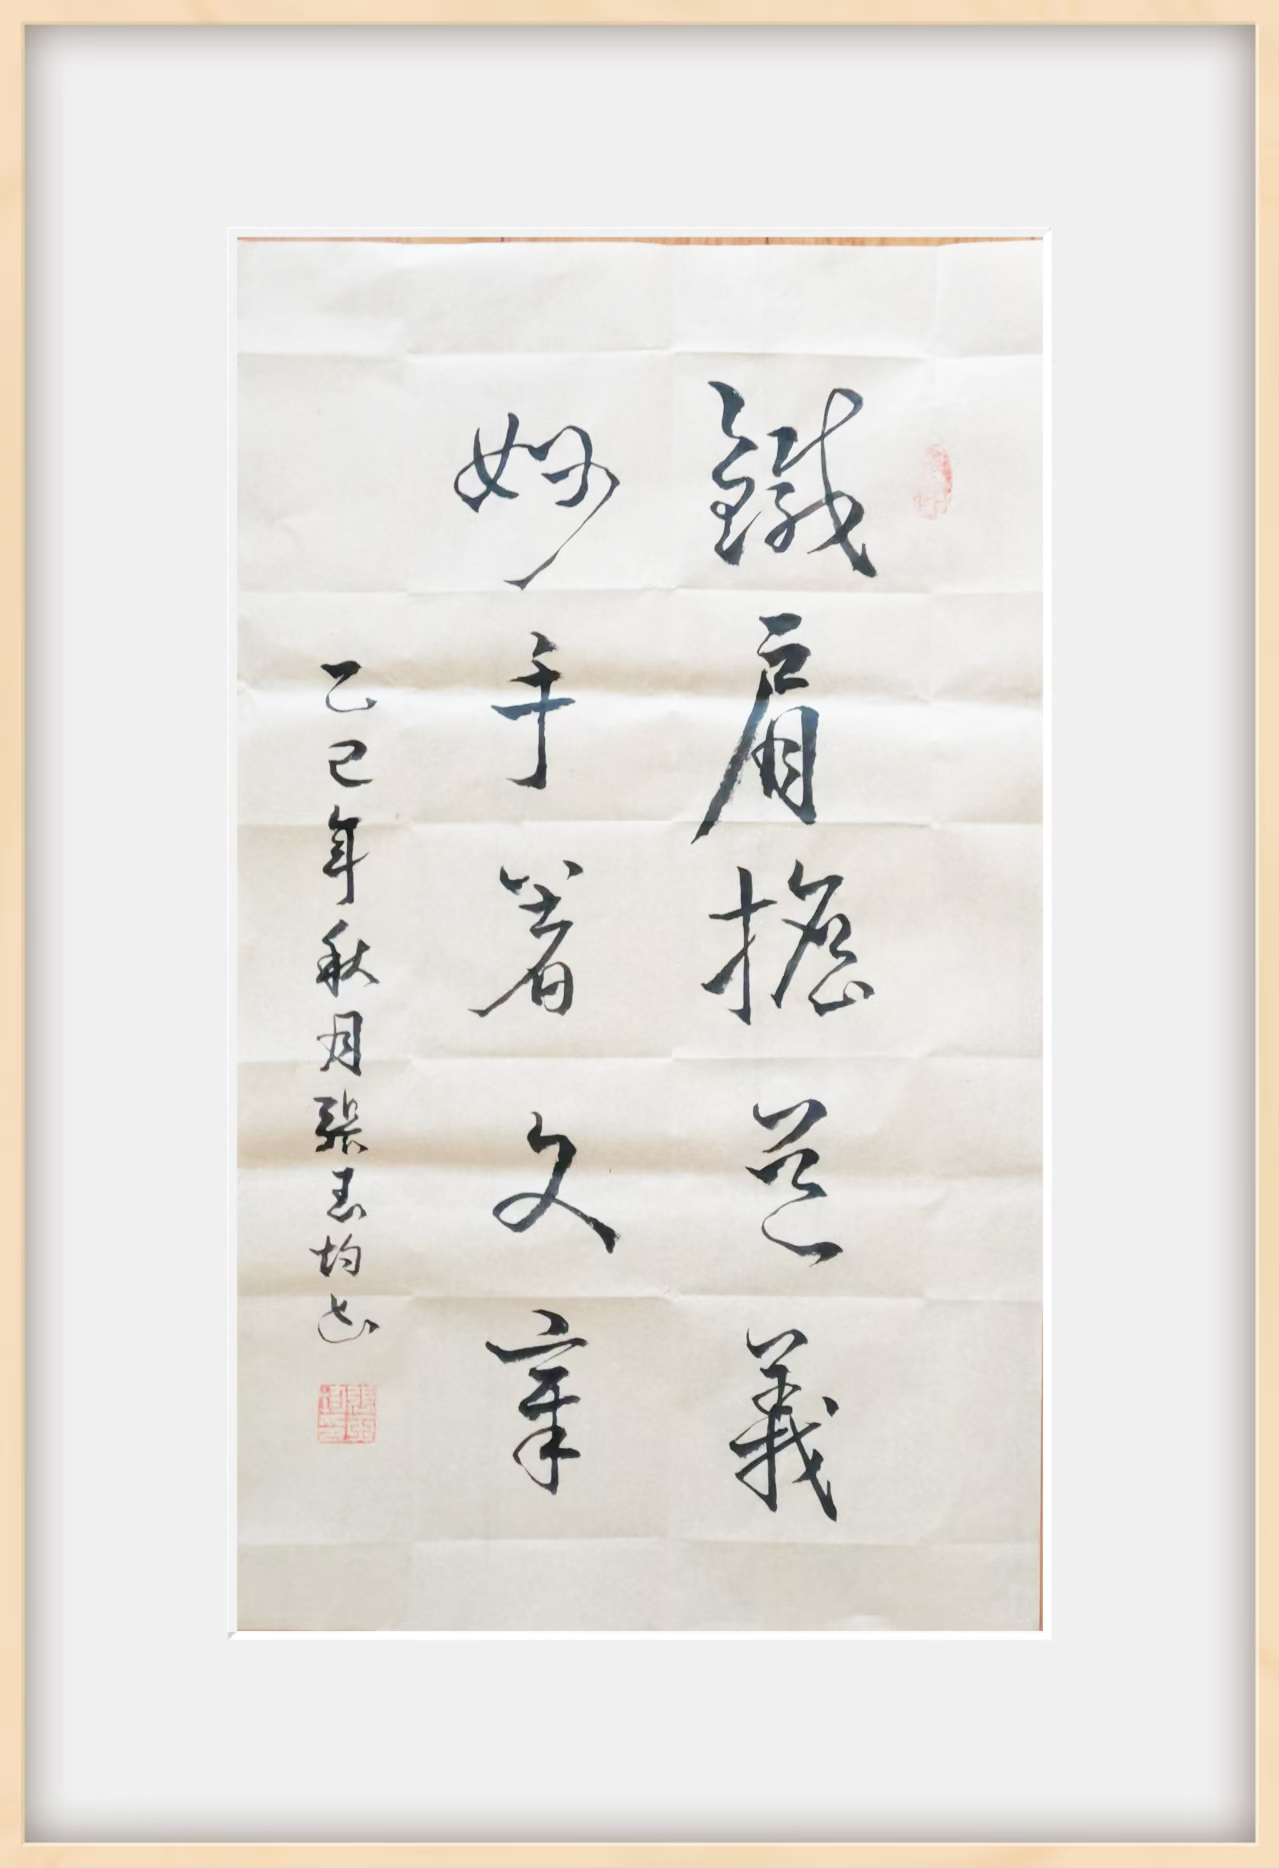 鐵肩擔道義
妙手著文章
乙巳年秋月張玉均書